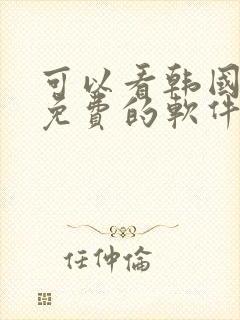 可以看韩國
免費的軟件
任仲倫